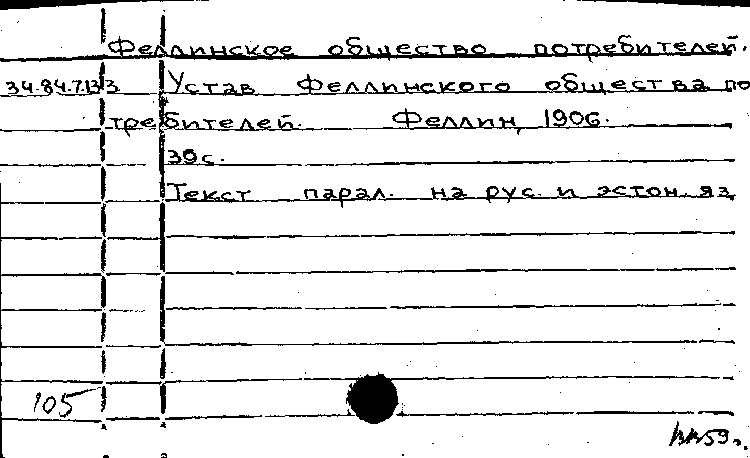 Феллинское общество потребителей.
34.84.7.133 Устав Феллинского общества по
требителей. Феллин, 1906.
39с.
Текст парал. на рус. и эстон. яз
105